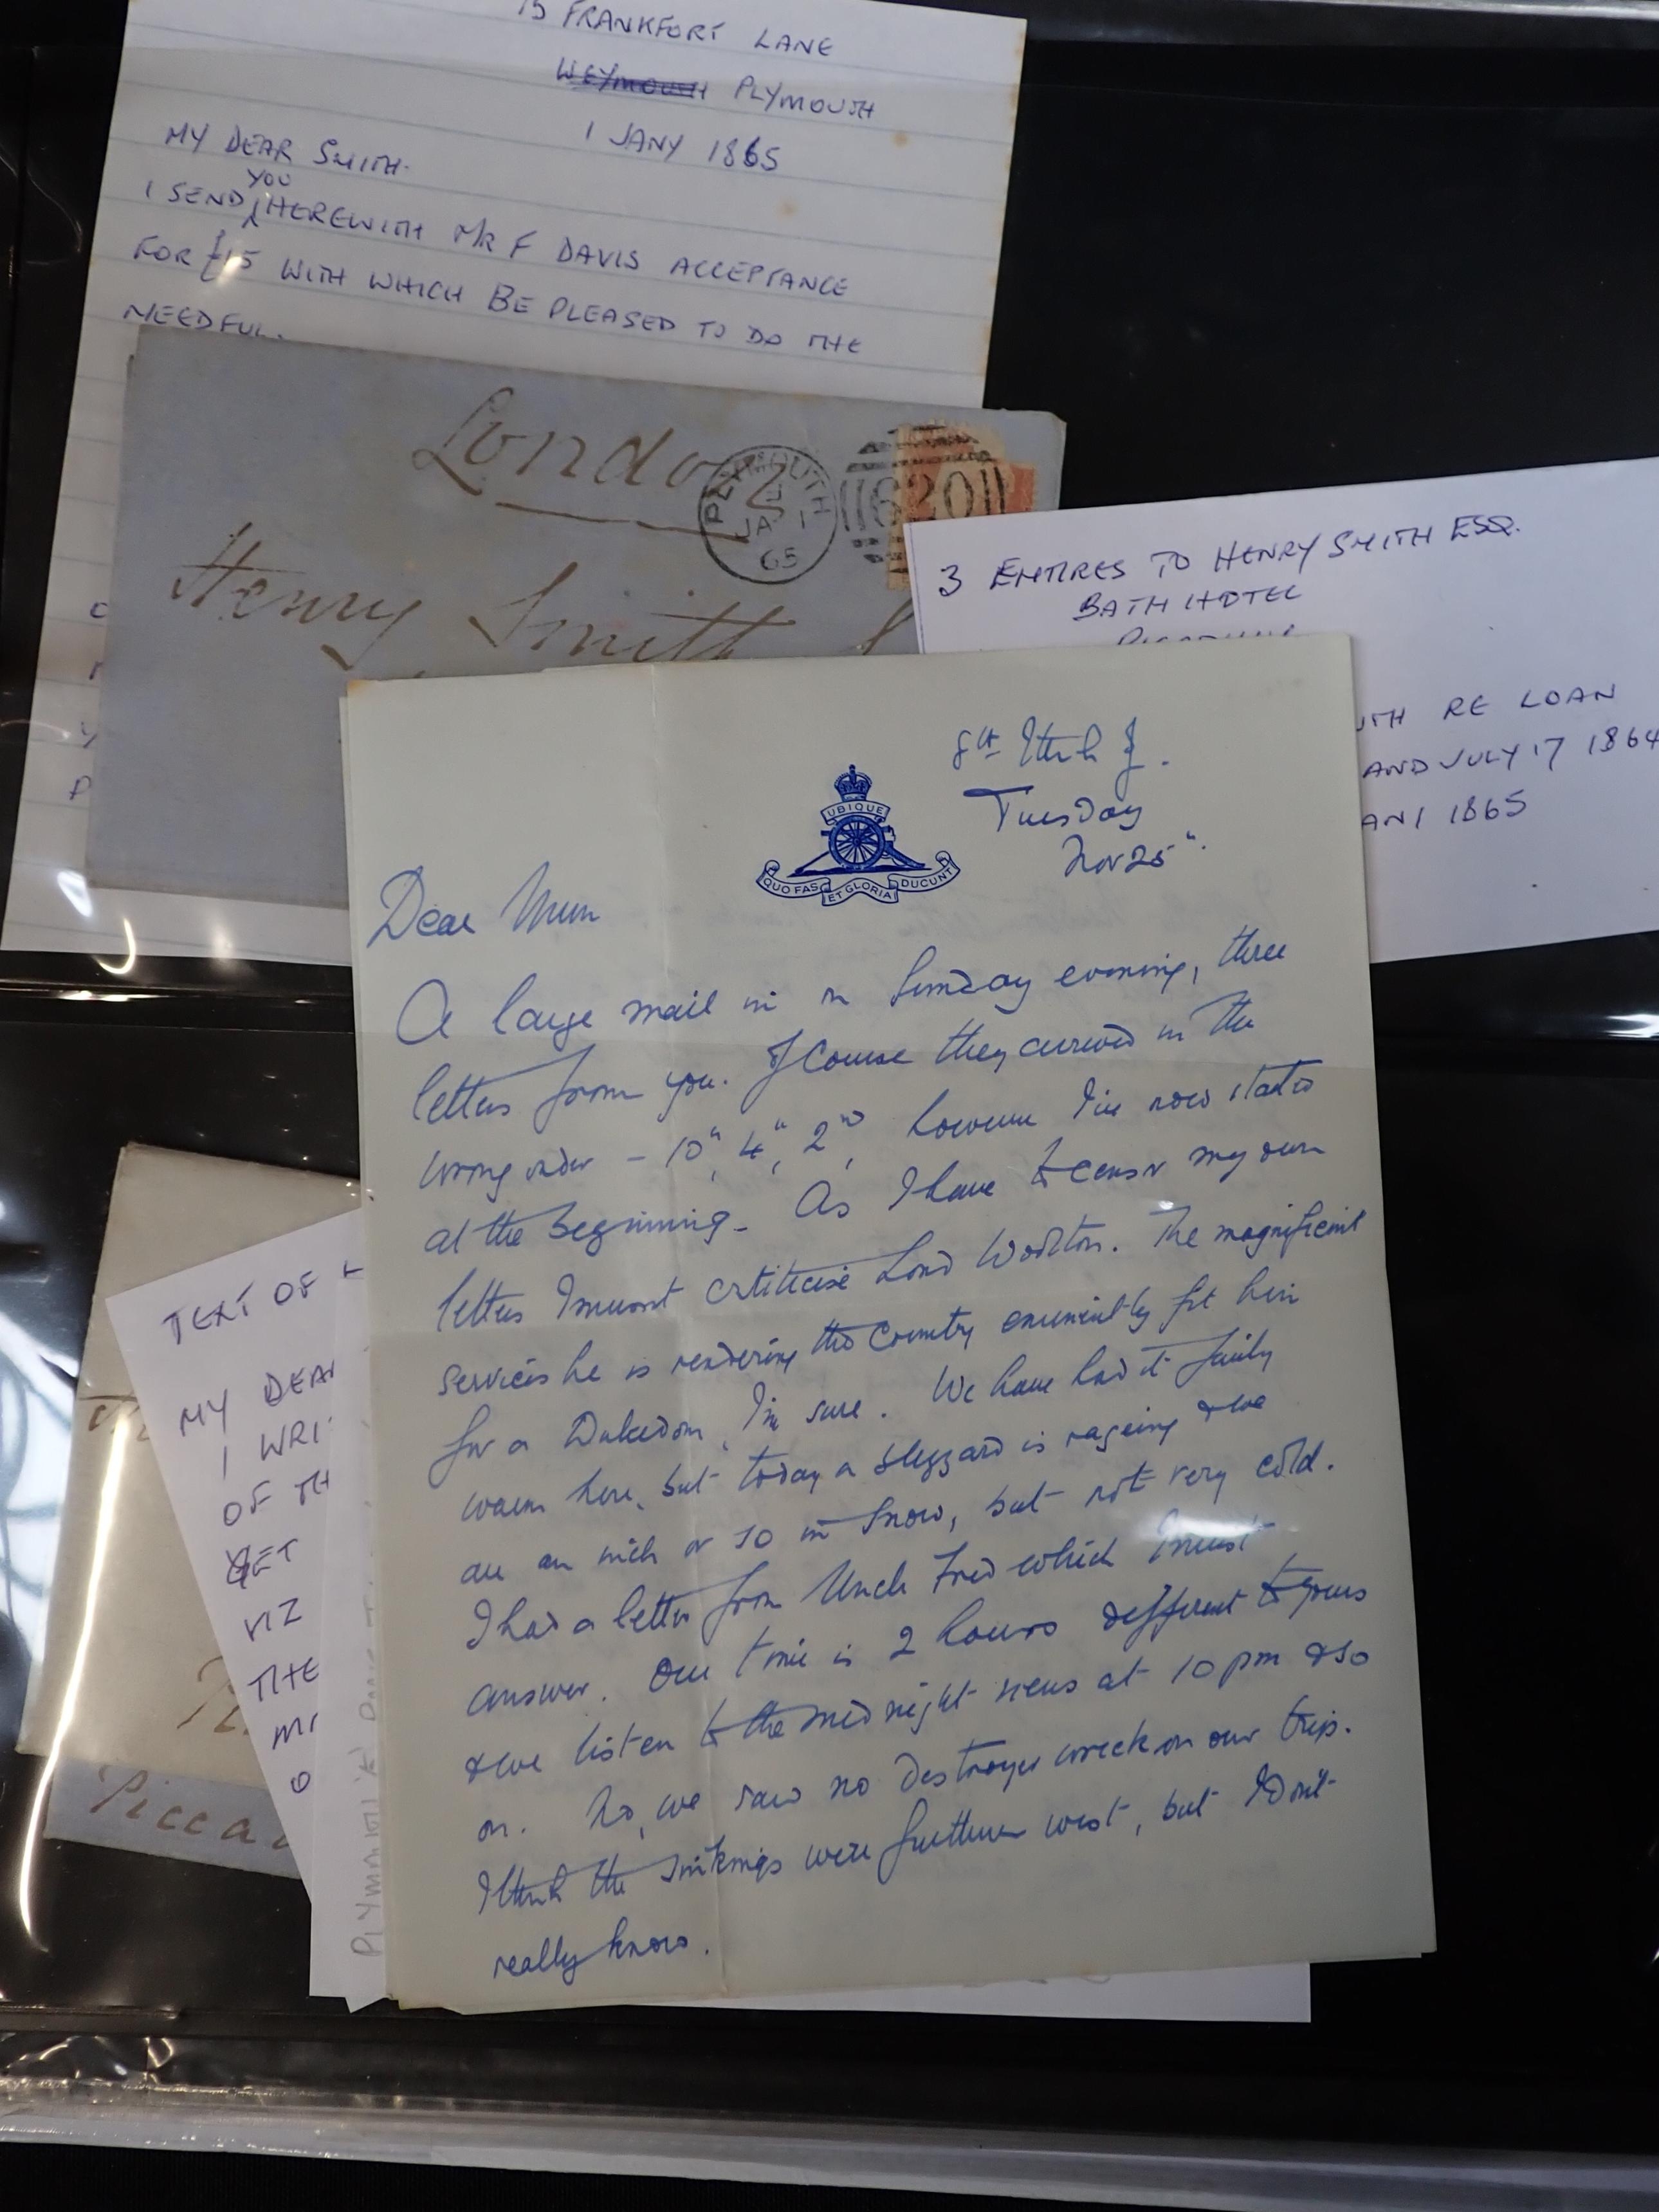 15 FRANKFORT LANE
WEYMOUTH PLYMOUTH
1 JANY 1865
MY DEAR SMITH.
I SEND YOU HEREWITH MR F DAVIS ACCEPTANCE
FOR £15 WITH WHICH BE PLEASED TO DO THE
NEEDFUL.
London
PLYMOUTH
JA 1
65
620
Henry Smith
3 ENTIRES TO HENRY SMITH ESQ.
BATH HOTEL
RE LOAN
AND JULY 17 1864
1865
Tuesday
Nov 25"
UBIQUE
QUO FAS ET GLORIA DUCUNT
Dear Mum
A large mail in on Sunday evening, three
letters from you. Of course they arrived in the
wrong order - 10", 4", 2nd, however I've now started
at the beginning. As I have to censor my own
letters I must criticise Lord Woolton. The magnificent
services he is rendering the country eminently fit him
for a Dukedom, I'm sure. We have had it fairly
warm here, but today a blizzard is rageing & we
are an inch or so in snow, but not very cold.
I had a letter from Uncle Fred which I must
answer. Our time is 2 hours different to yours
& we listen to the midnight news at 10 pm & so
on. No, we saw no destroyer wreck on our trip.
I think the sinkings were further west, but I don't
really know.
TEXT OF
MY DEAR
I WRI
OF TH
GET
VIZ
THE
Picca